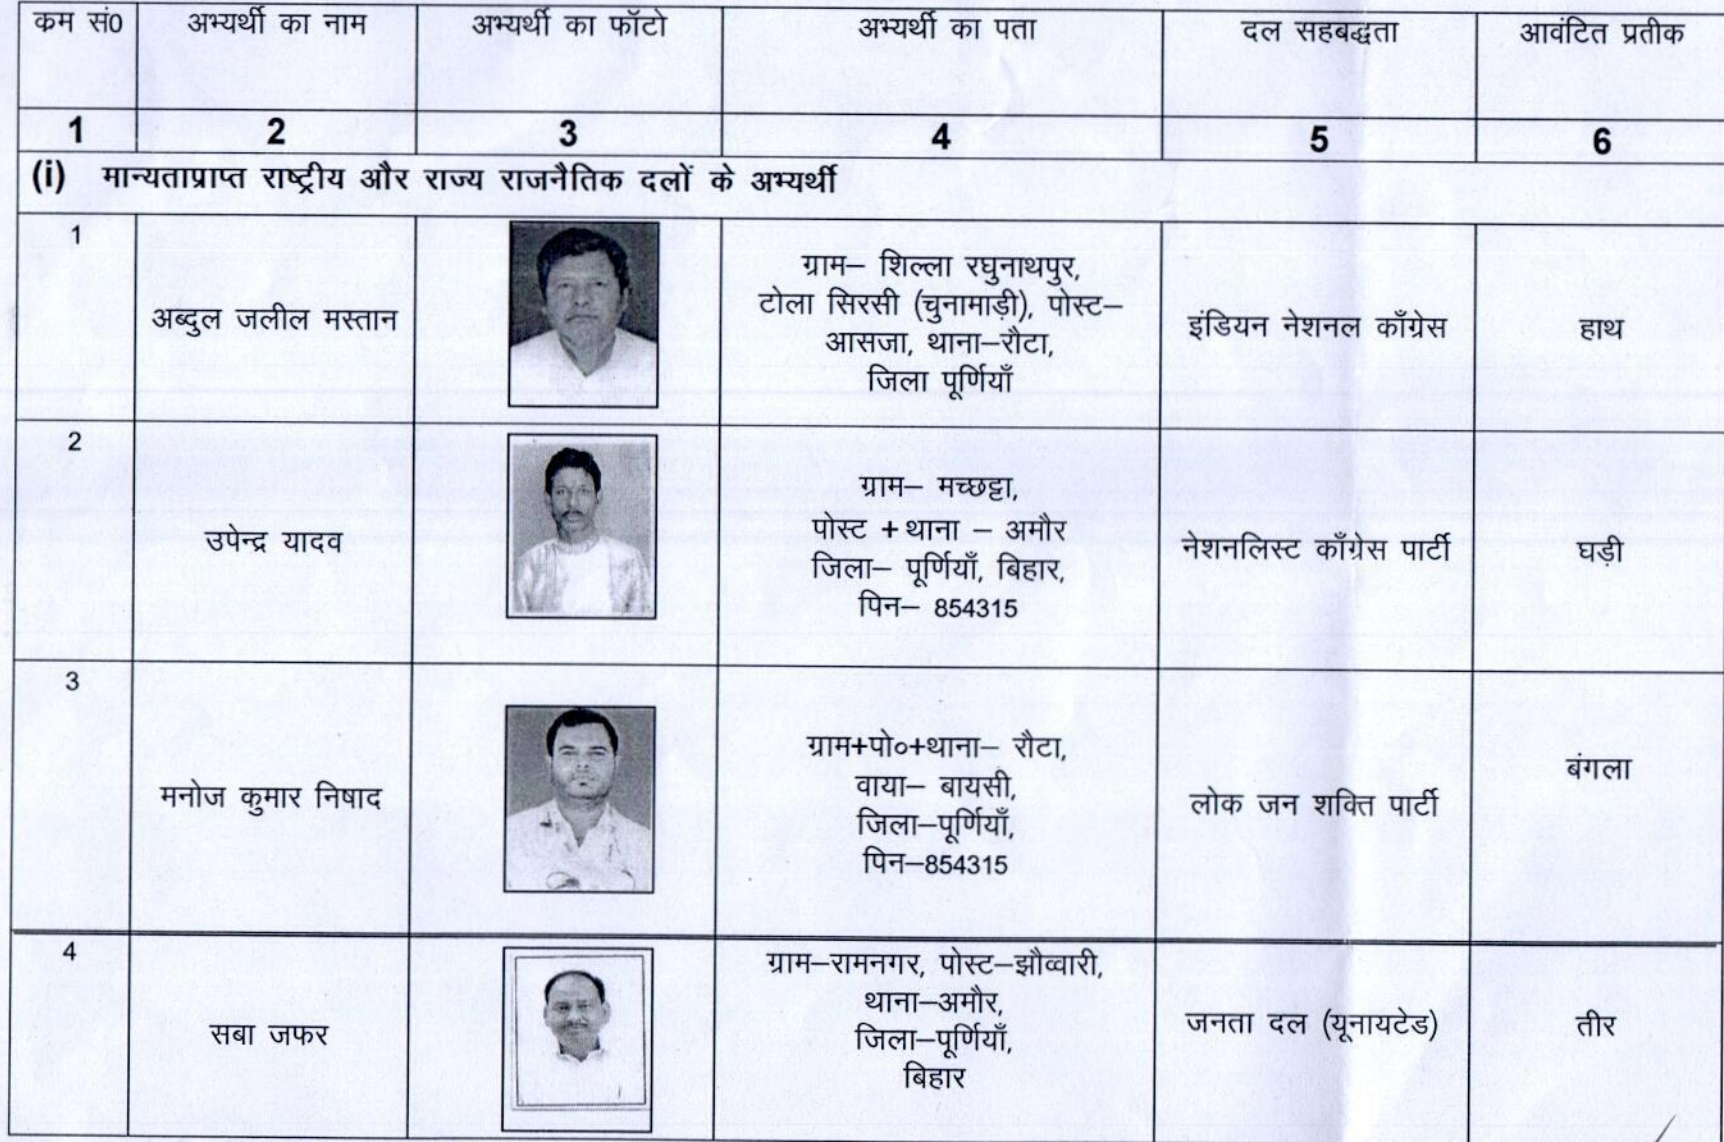 क्रम सं0 अभ्यर्थी का नाम अभ्यर्थी का फॉटो अभ्यर्थी का पता दल सहबद्धता आवंटित प्रतीक
1 2 3 4 5 6
(i) मान्यताप्राप्त राष्ट्रीय और राज्य राजनैतिक दलों के अभ्यर्थी
1
अब्दुल जलील मस्तान
ग्राम– शिल्ला रघुनाथपुर,
टोला सिरसी (चुनामाड़ी), पोस्ट–
आसजा, थाना–रौटा,
जिला पूर्णियाँ
इंडियन नेशनल काँग्रेस
हाथ
2
उपेन्द्र यादव
ग्राम– मच्छट्टा,
पोस्ट + थाना – अमौर
जिला– पूर्णियाँ, बिहार,
पिन– 854315
नेशनलिस्ट काँग्रेस पार्टी
घड़ी
3
मनोज कुमार निषाद
ग्राम+पो०+थाना– रौटा,
वाया– बायसी,
जिला–पूर्णियाँ,
पिन–854315
लोक जन शक्ति पार्टी
बंगला
4
सबा जफर
ग्राम–रामनगर, पोस्ट–झौव्वारी,
थाना–अमौर,
जिला–पूर्णियाँ,
बिहार
जनता दल (यूनायटेड)
तीर